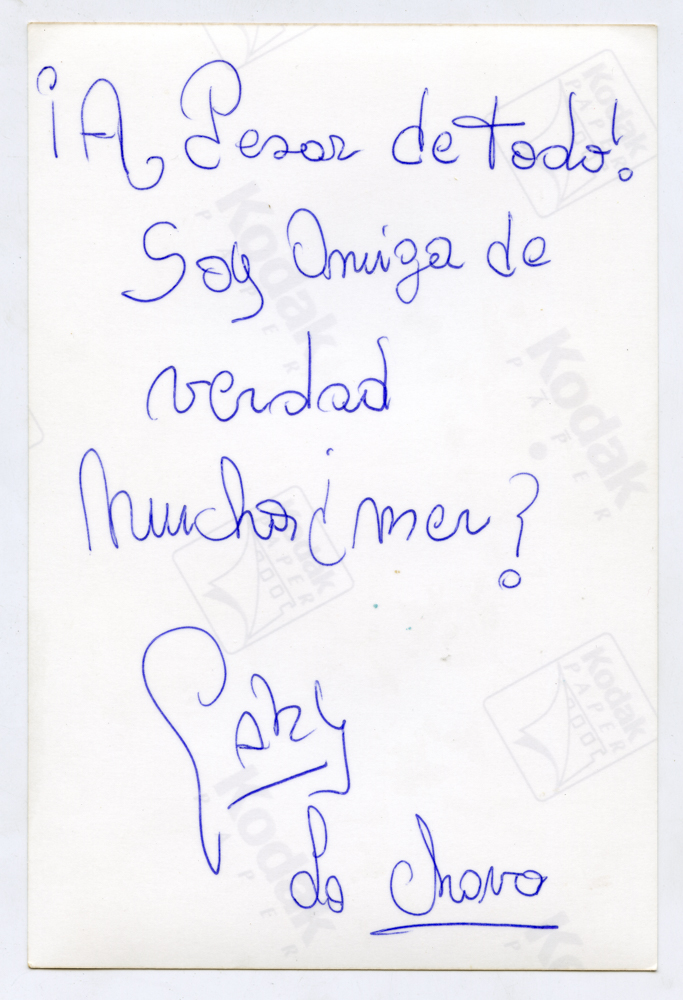 ¡A Pesar de todo!
Soy Amiga de
verdad
Muchas ¿mer?
Paky
La Chava
Kodak
PAPER
Kodak
PAPER
Kodak
PAPER
Kodak
PAPER
Kodak
PAPER
Kodak
PAPER